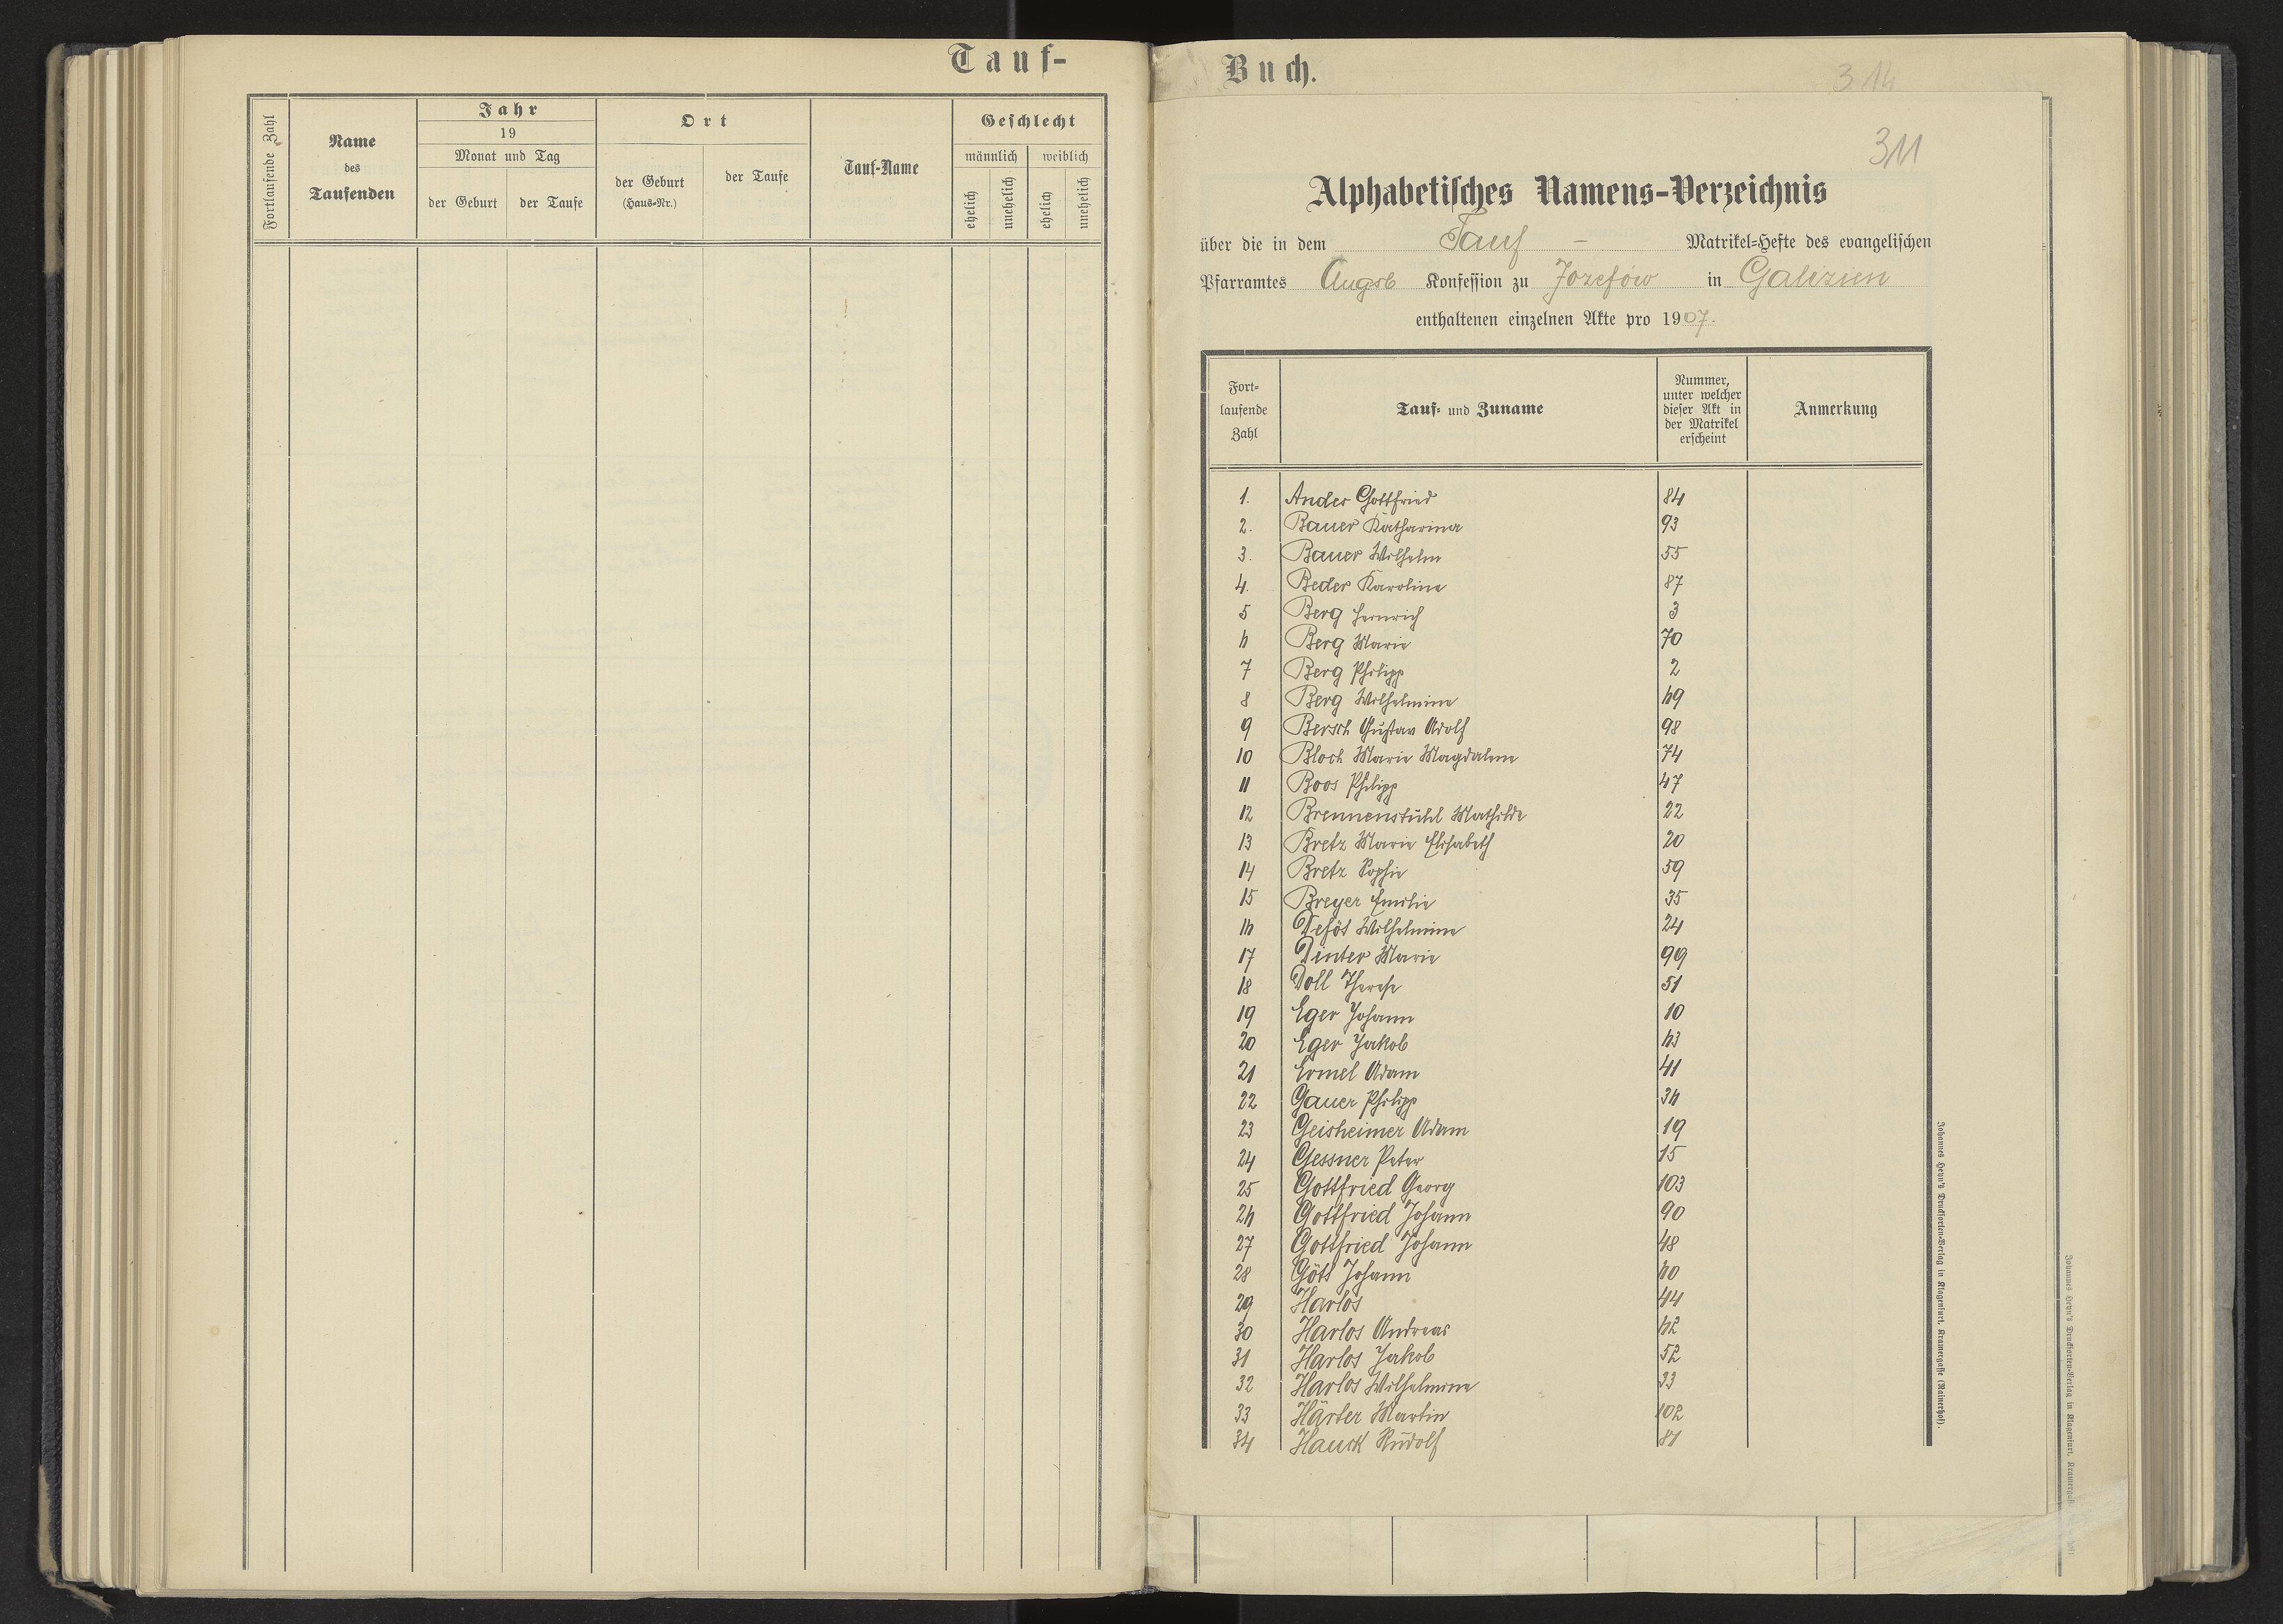 Tauf-
Fortlaufende Zahl
Name
des
Taufenden
Jahr
19
Monat und Tag
der Geburt
der Taufe
Ort
der Geburt
(Haus-Nr.)
der Taufe
Tauf-Name
Geschlecht
männlich weiblich
ehelich
unehelich
ehelich
unehelich
Buch.
314
311
Alphabetisches Namens-Verzeichnis
über die in dem Tauf - Matrikel-Hefte des evangelischen
Pfarramtes Augsb Konfession zu Józefów in Galizien
enthaltenen einzelnen Akte pro 1907.
Fort-
laufende
Zahl
Tauf- und Zuname
Nummer,
unter welcher
dieser Akt in
der Matrikel
erscheint
Anmerkung
1. Ander Gottfried 84
2. Bauer Katharina 93
3. Bauer Wilhelm 55
4. Beder Karoline 87
5 Berg Heinrich 3
6 Berg Marie 70
7 Berg Philipp 2
8 Berg Wilhelmine 69
9 Bersch Gustav Adolf 98
10 Bloch Marie Magdalene 74
11 Boos Philipp 47
12 Brennenstuhl Mathilde 22
13 Bretz Marie Elisabeth 20
14 Bretz Sophie 59
15 Breyer Emilie 35
16 Wilhelmine 24
17 Dinter Marie 99
18 Doll Therese 51
19 Eger Johann 10
20 Eger Jakob 63
21 Ermel Adam 41
22 Gauer Philipp 36
23 Geisheimer Adam 19
24 Gessner Peter 15
25 Gottfried Georg 103
26 Gottfried Johann 90
27 Gottfried Johann 48
28 Götz Johann 60
29 Harlos 44
30 Harlos Andreas 62
31 Harlos Jakob 52
32 Harlos Wilhelmine 33
33 Härter Martin 102
34 Hauck Rudolf 81
Johannes Heyn's Drucksorten-Verlag in Klagenfurt, Kramergasse (Rainerhof).
Johannes Heyn's Drucksorten-Verlag in Klagenfurt,